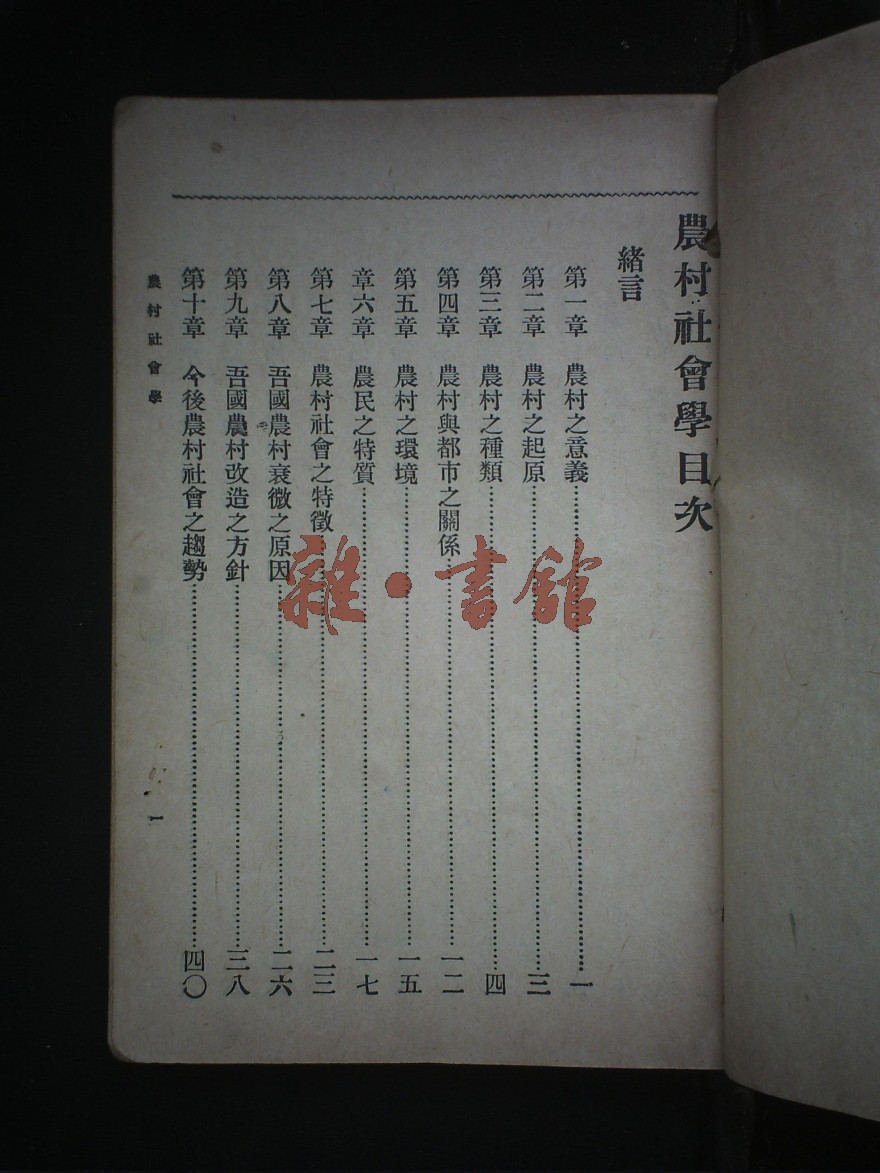 農村社會學目次
緒言
第一章 農村之意義……一
第二章 農村之起原……三
第三章 農村之種類……四
第四章 農村與都市之關係……一二
第五章 農村之環境……一五
章六章 農民之特質……一七
第七章 農村社會之特徵……二三
第八章 吾國農村衰微之原因……二六
第九章 吾國農村改造之方針……三八
第十章 今後農村社會之趨勢……四〇
農村社會學
一
雜·書館